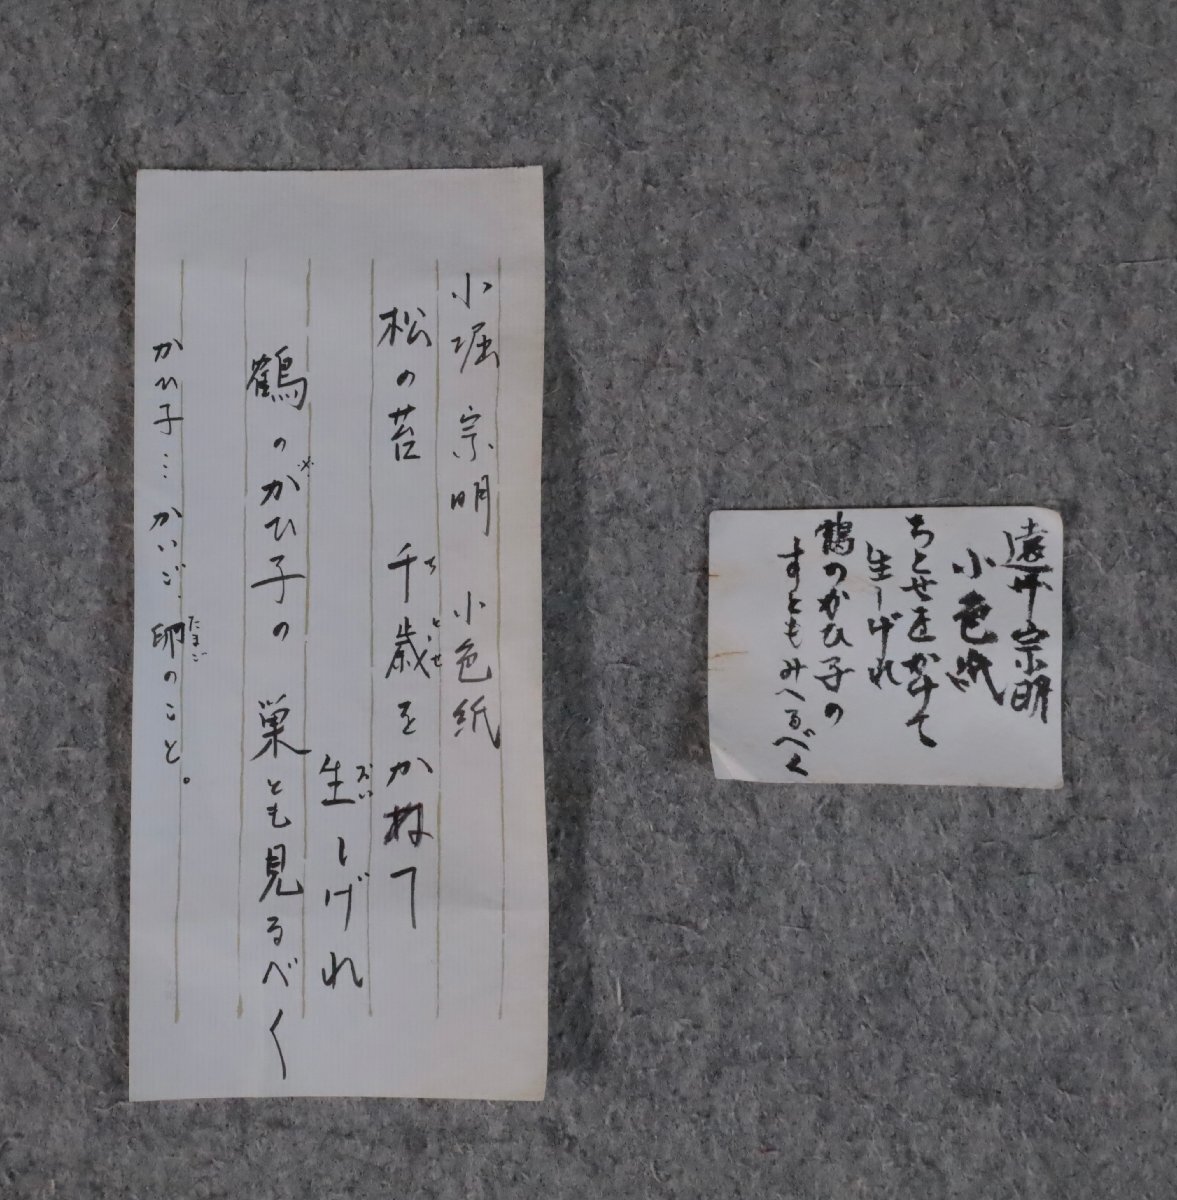 小堀 宗明 小色紙
松の苔 千歳をかねて
ちとせ
生しげれ
おい
鶴のかひ子の 巣とも見るべく
※
かひ子…かいご、卵のこと。
たまご
遠州宗明
小色紙
ちとせをかけて
生しげれ
鶴のかひ子の
すともみへるべく